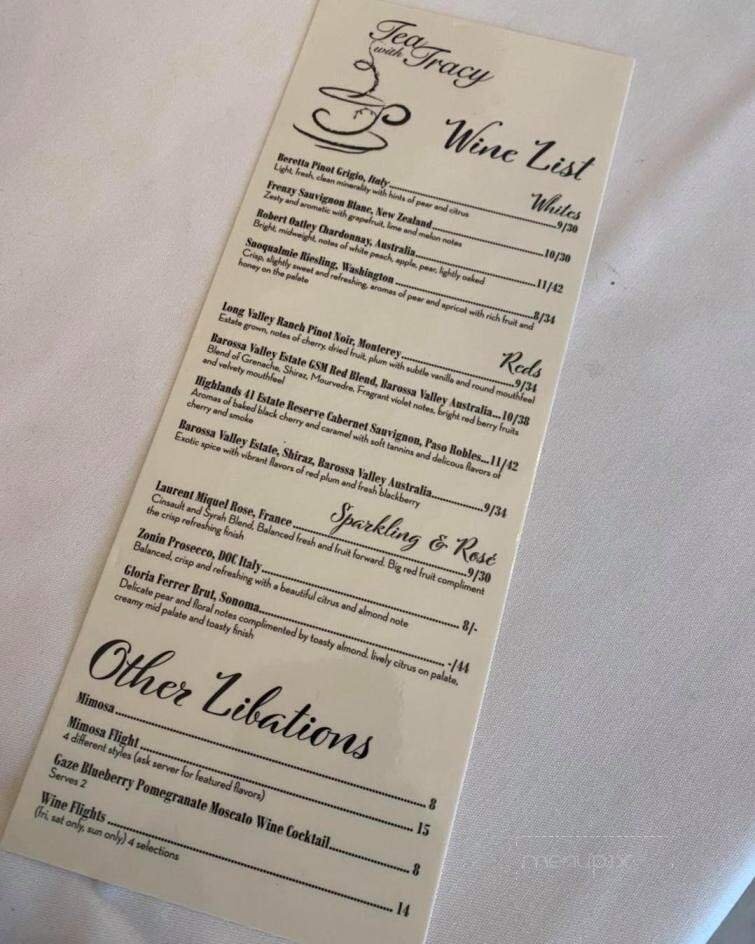 Tea
with Tracy
Wine List
Whites
Beretta Pinot Grigio, Italy...9/30
Light, fresh, clean minerality with hints of pear and citrus
Frenzy Sauvignon Blanc, New Zealand...10/30
Zesty and aromatic with grapefruit, lime and melon notes
Robert Oatley Chardonnay, Australia...11/42
Bright, midweight, notes of white peach, apple, pear, lightly oaked
Snoqualmie Riesling, Washington...8/34
Crisp, slightly sweet and refreshing, aromas of pear and apricot with rich fruit and
honey on the palate
Reds
Long Valley Ranch Pinot Noir, Monterey...9/34
Estate grown, notes of cherry, dried fruit, plum with subtle vanilla and round mouthfeel
Barossa Valley Estate GSM Red Blend, Barossa Valley Australia...10/38
Blend of Grenache, Shiraz, Mourvedre, Fragrant violet notes, bright red berry fruits
and velvety mouthfeel
Highlands 41 Estate Reserve Cabernet Sauvignon, Paso Robles...11/42
Aromas of baked black cherry and caramel with soft tannins and delicous flavors of
cherry and smoke
Barossa Valley Estate, Shiraz, Barossa Valley Australia...9/34
Exotic spice with vibrant flavors of red plum and fresh blackberry
Sparkling & Rosé
Laurent Miquel Rose, France...9/30
Cinsault and Syrah Blend, Balanced fresh and fruit forward. Big red fruit compliment
the crisp refreshing finish
Zonin Prosecco, DOC Italy...8/-
Balanced, crisp and refreshing with a beautiful citrus and almond note
Gloria Ferrer Brut, Sonoma...-/44
Delicate pear and floral notes complimented by toasty almond. lively citrus on palate,
creamy mid palate and toasty finish
Other Libations
Mimosa...8
Mimosa Flight...15
4 different styles (ask server for featured flavors)
Gaze Blueberry Pomegranate Moscato Wine Cocktail...8
Serves 2
Wine Flights...14
(fri, sat only, sun only) 4 selections
menupix